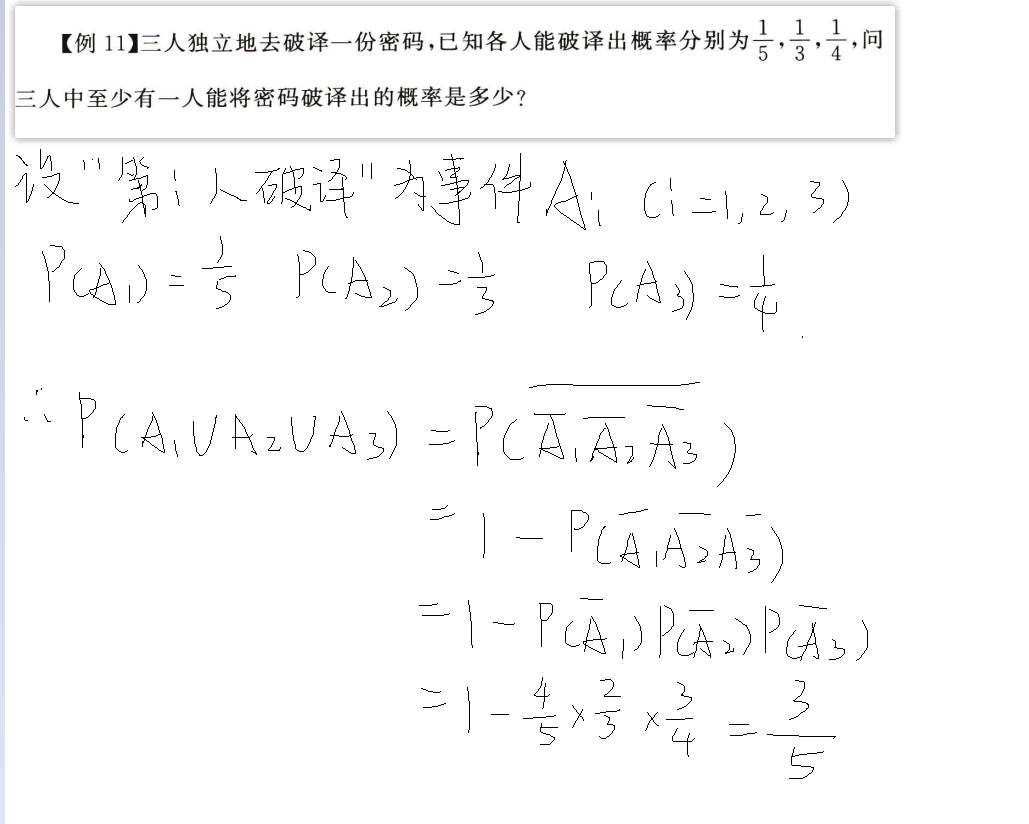 【例 11】三人独立地去破译一份密码,已知各人能破译出概率分别为1/5,1/3,1/4,问
三人中至少有一人能将密码破译出的概率是多少?
设"第i人破译"为事件Aᵢ (i=1,2,3)
P(A₁)=1/5 P(A₂)=1/3 P(A₃)=1/4
∴P(A₁∪A₂∪A₃)=P(\overline{A̅₁A̅₂A̅₃})
=1-P(A̅₁A̅₂A̅₃)
=1-P(A̅₁)P(A̅₂)P(A̅₃)
=1-4/5×2/3×3/4=3/5